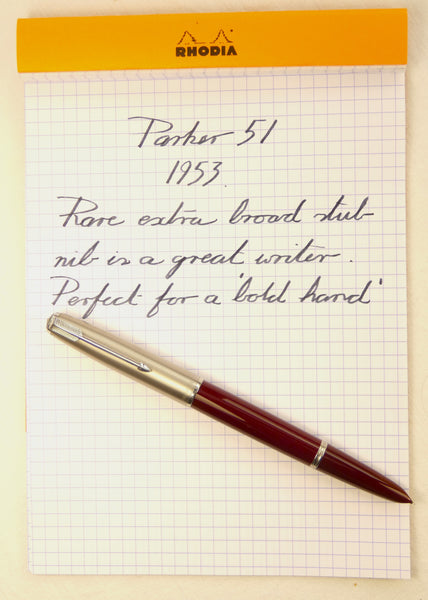 RHODIA
Parker 51
1953.
Rare extra broad stub
nib is a great writer.
Perfect for a 'bold hand'